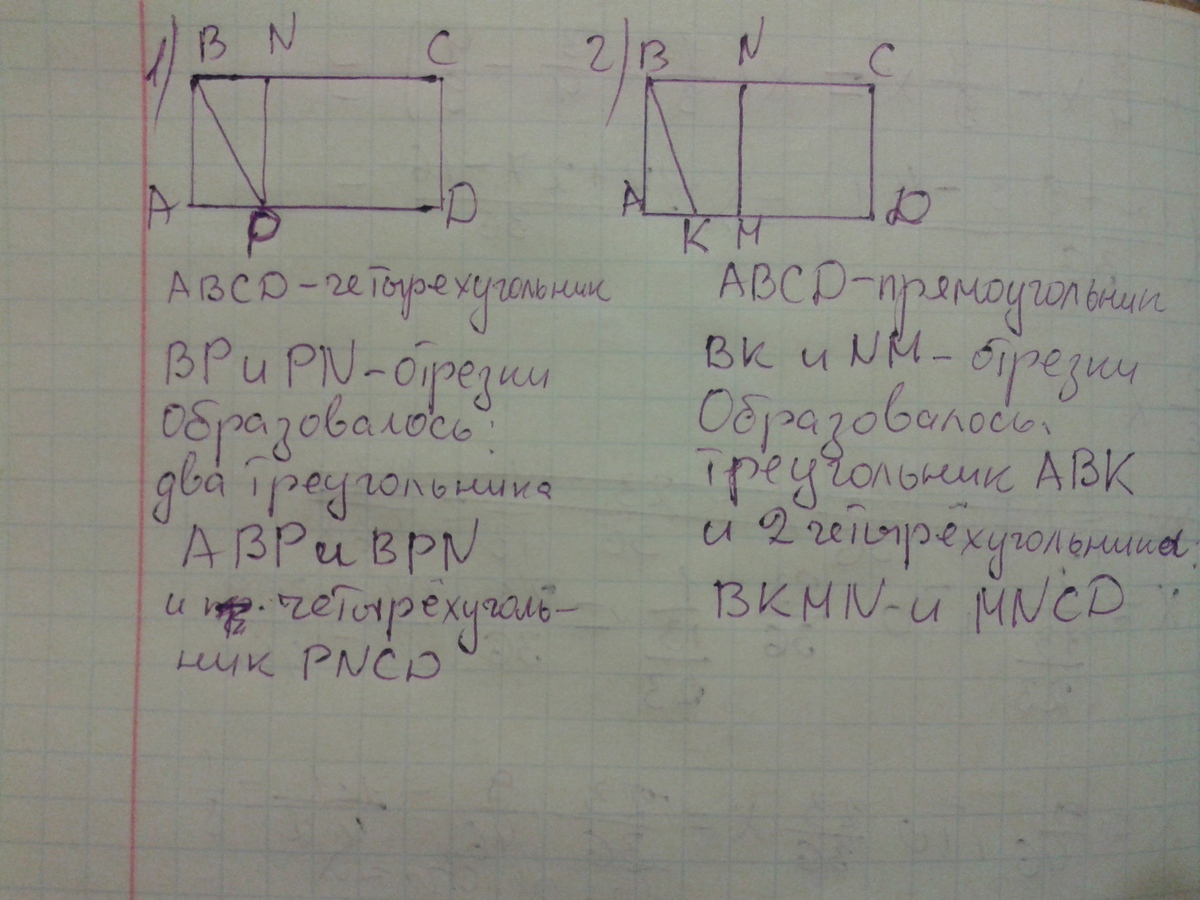 1) B N C
A P D
ABCD-четырехугольник
BP и PN-отрезки
Образовалось:
два треугольника
ABP и BPN
и четырёхуголь-
ник PNCD
2) B N C
A K M D
ABCD-прямоугольник
BK и NM-отрезки
Образовалось:
треугольник ABK
и 2 четырёхугольника:
BKMN-и MNCD